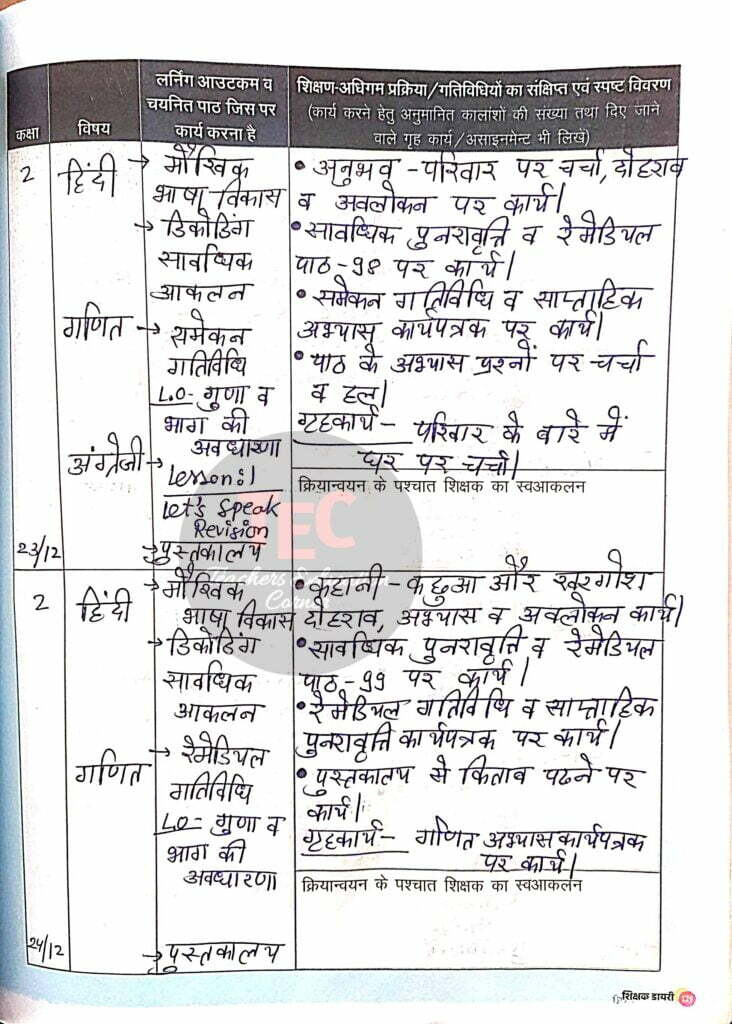 कक्षा
विषय
लर्निंग आउटकम व
चयनित पाठ जिस पर
कार्य करना है
शिक्षण-अधिगम प्रक्रिया/गतिविधियों का संक्षिप्त एवं स्पष्ट विवरण
(कार्य करने हेतु अनुमानित कालांशों की संख्या तथा दिए जाने
वाले गृह कार्य/असाइनमेंट भी लिखें)
2
हिंदी
→ मौखिक
भाषा विकास
→ डिकोडिंग
सावधिक
आकलन
गणित
→ समेकन
गतिविधि
L.O- गुणा व
भाग की
अवधारणा
अंग्रेजी
→ Lesson:1
Let's Speak
Revision
23/12
→ पुस्तकालय
• अनुभव - परिवार पर चर्चा, दोहराव
व अवलोकन पर कार्य।
• सावधिक पुनरावृत्ति व रेमेडियल
पाठ-98 पर कार्य।
• समेकन गतिविधि व साप्ताहिक
अभ्यास कार्यपत्रक पर कार्य।
• पाठ के अभ्यास प्रश्नों पर चर्चा
व हल।
गृहकार्य - परिवार के बारे में
घर पर चर्चा।
क्रियान्वयन के पश्चात शिक्षक का स्वआकलन
TEC
Teachers Education
Corner
2
हिंदी
→ मौखिक
भाषा विकास
→ डिकोडिंग
सावधिक
आकलन
गणित
→ रेमेडियल
गतिविधि
LO- गुणा व
भाग की
अवधारणा
24/12
→ पुस्तकालय
• कहानी - कछुआ और खरगोश
दोहराव, अभ्यास व अवलोकन कार्य।
• सावधिक पुनरावृत्ति व रेमेडियल
पाठ-99 पर कार्य।
• रेमेडियल गतिविधि व साप्ताहिक
पुनरावृत्ति कार्यपत्रक पर कार्य।
• पुस्तकालय से किताब पढने पर
कार्य।
गृहकार्य - गणित अभ्यास कार्यपत्रक
पर कार्य।
क्रियान्वयन के पश्चात शिक्षक का स्वआकलन
शिक्षक डायरी